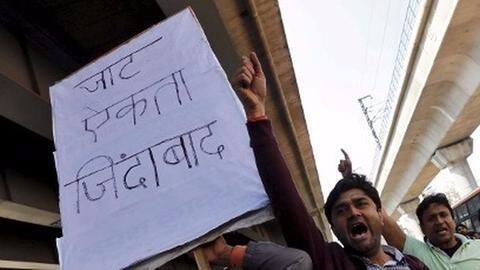 जाट
ऐकता
जिंदाबाद